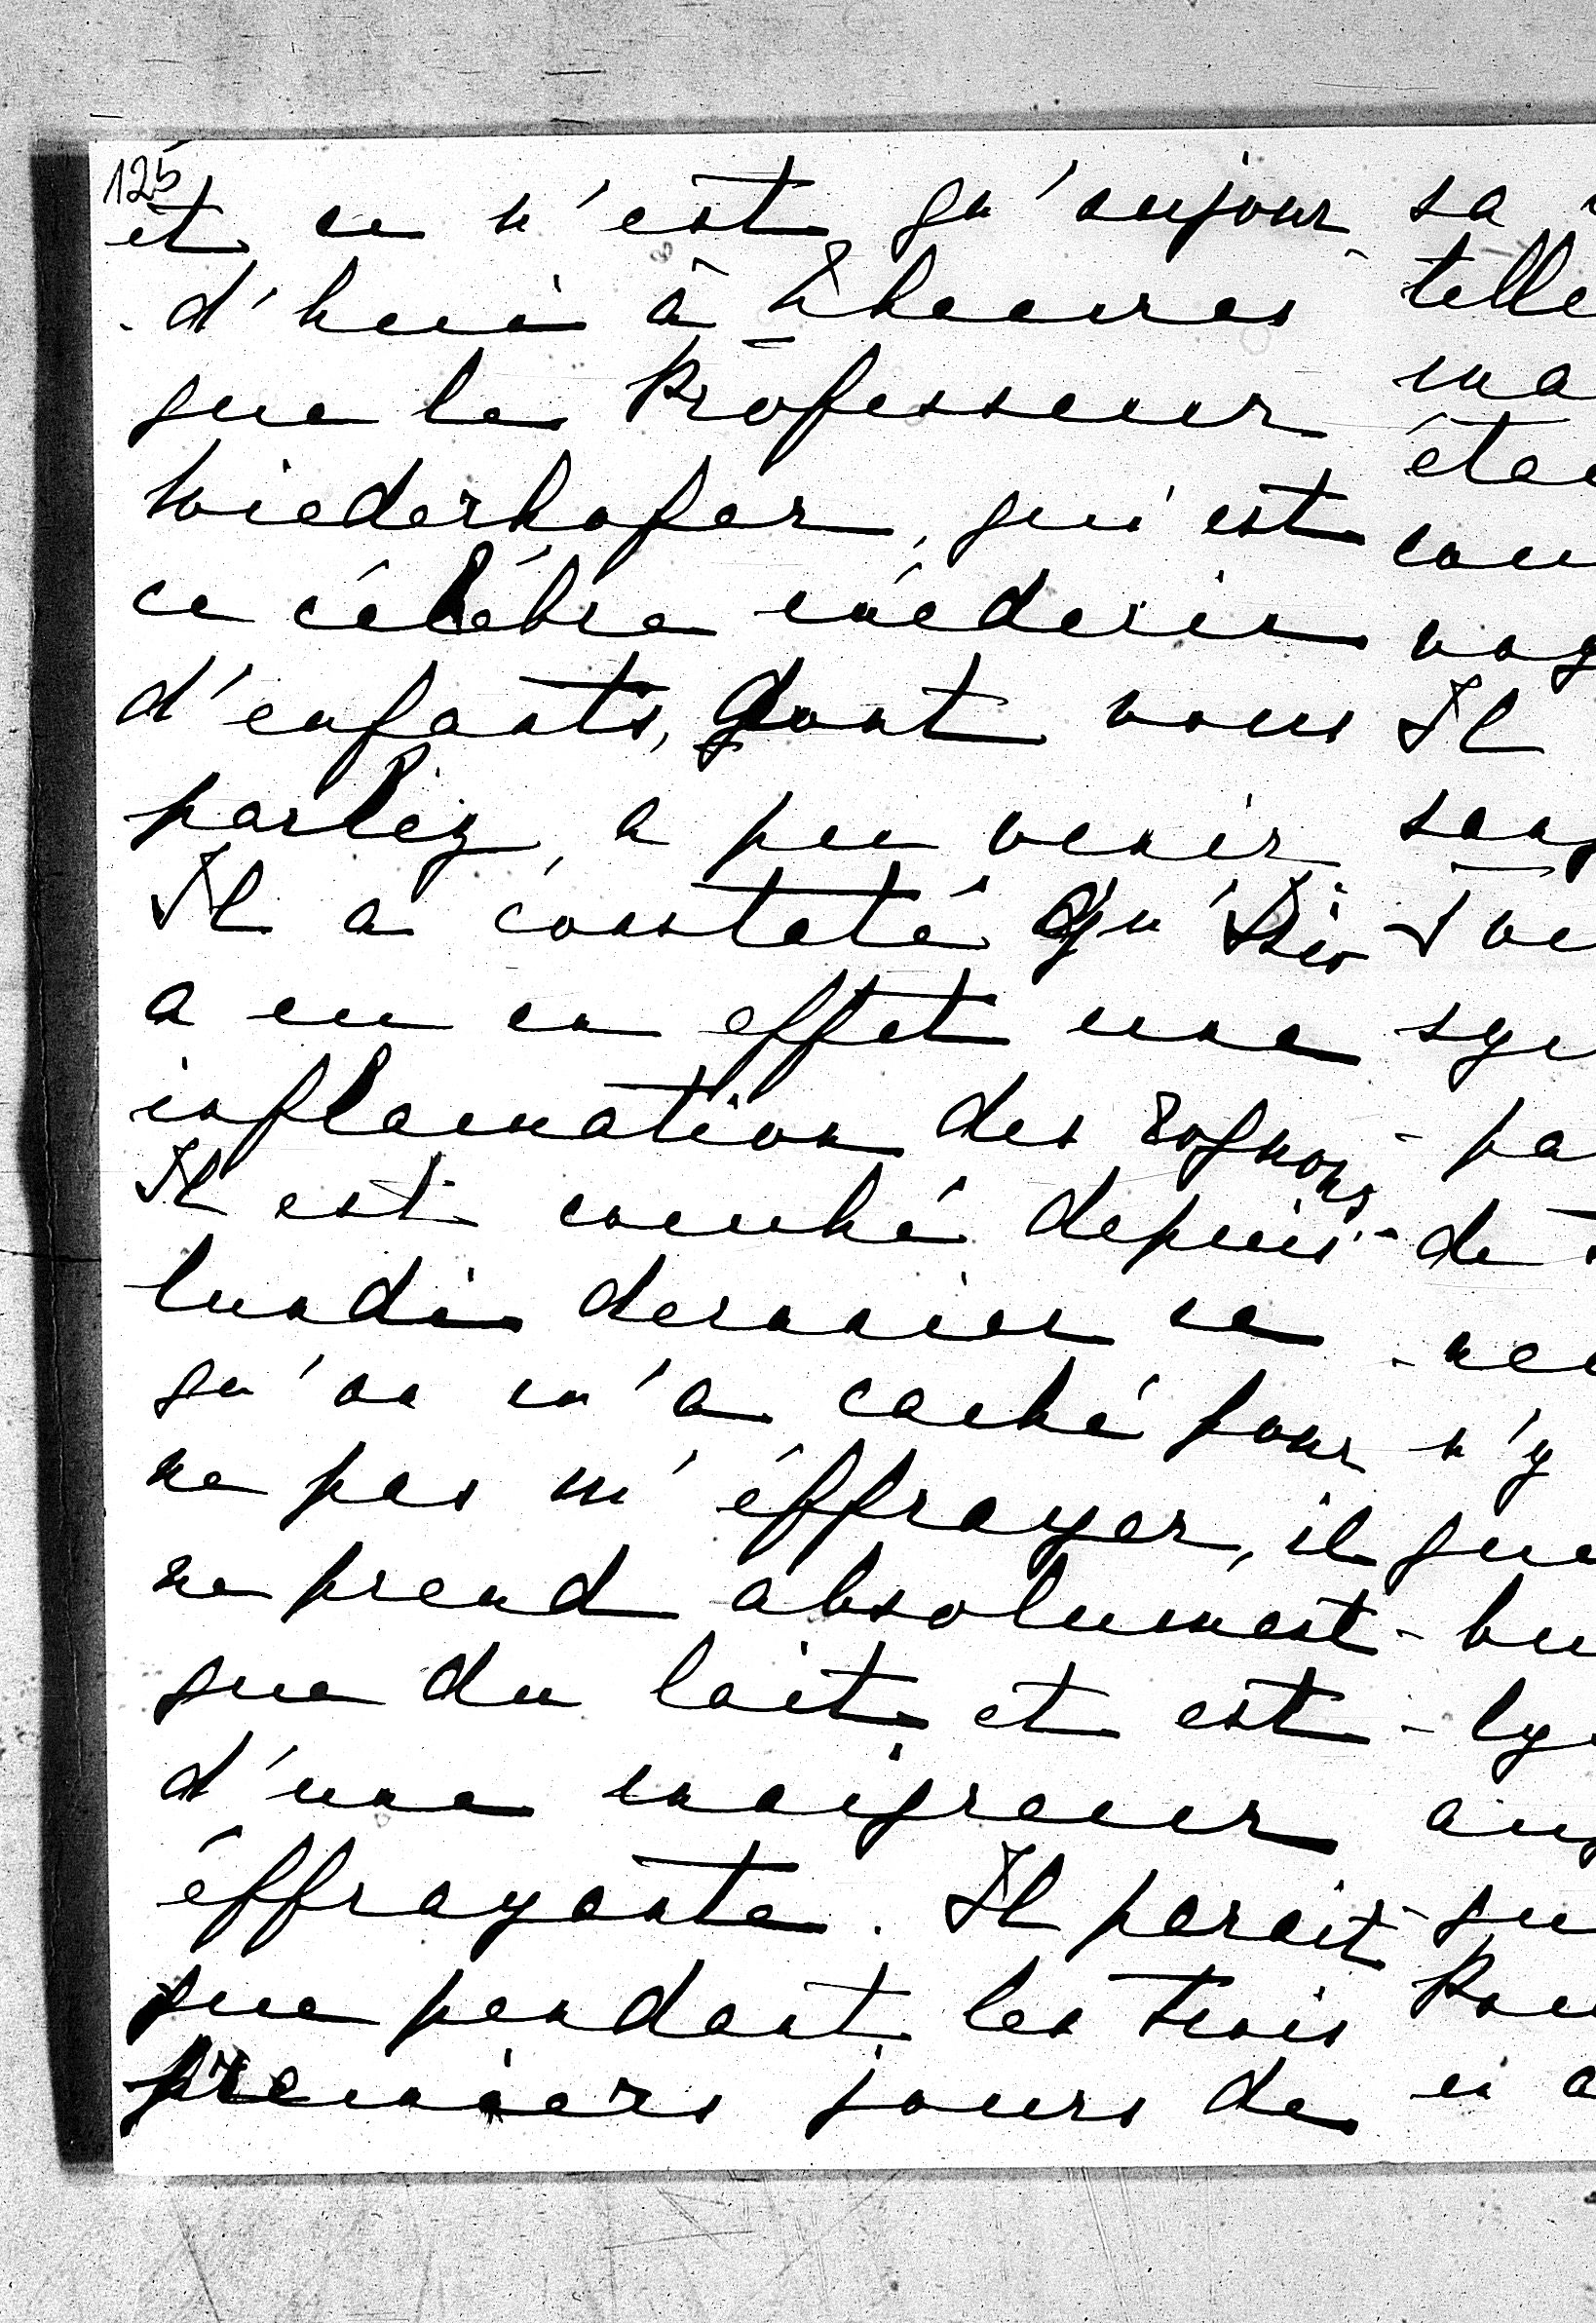 125
et ce n'est qu'aujour-
-d'hui à 2 heures
que le Professeur
Wiederhofer, qui est
ce célèbre médecin
d'enfants, dont vous
parliez, a pu venir.
Il a constaté qu'
a eu en effet une
inflamation des rognons
Il est couché depuis
lundi dernier ce
qu'on m'a caché pour
ne pas m'éffrayer, il
ne prend absolument
que du lait, et est
d'une maigreur
éffrayante. Il parait
que pendant les trois
premiers jours de
sa
telle
ma
Il
de
n'y
que